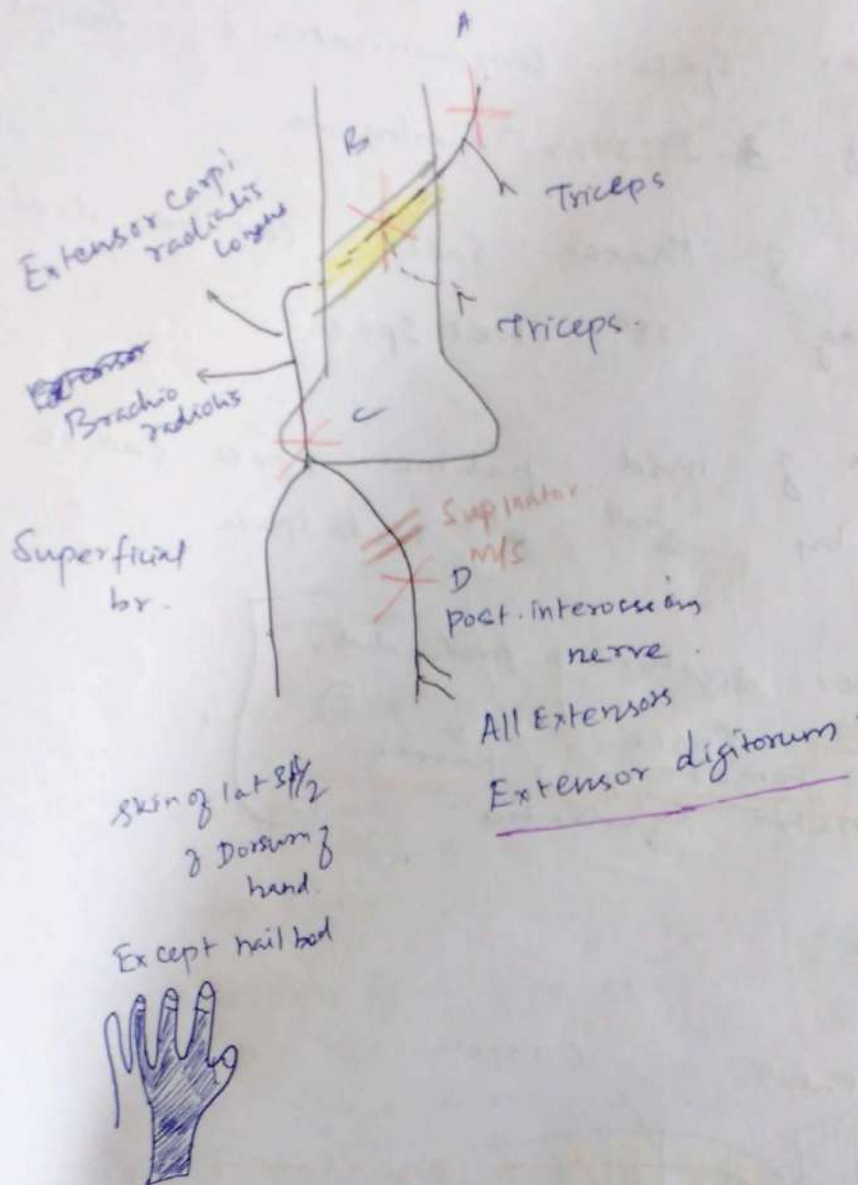 A
B
Triceps
Extensor Carpi
radialis
longus
Triceps.
Extensor
Brachio
radialis
C
Supinator
m/s
Superficial
br.
D
post. interosseous
nerve.
All Extensors
Extensor digitorum
skin of lat 3½
of Dorsum of
hand.
Except nail bed